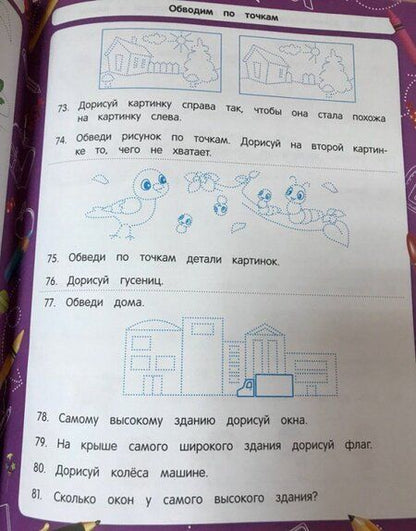 Обводим по точкам
73. Дорисуй картинку справа так, чтобы она стала похожа
на картинку слева.
74. Обведи рисунок по точкам. Дорисуй на второй картин-
ке то, чего не хватает.
75. Обведи по точкам детали картинок.
76. Дорисуй гусениц.
77. Обведи дома.
78. Самому высокому зданию дорисуй окна.
79. На крыше самого широкого здания дорисуй флаг.
80. Дорисуй колёса машине.
81. Сколько окон у самого высокого здания?